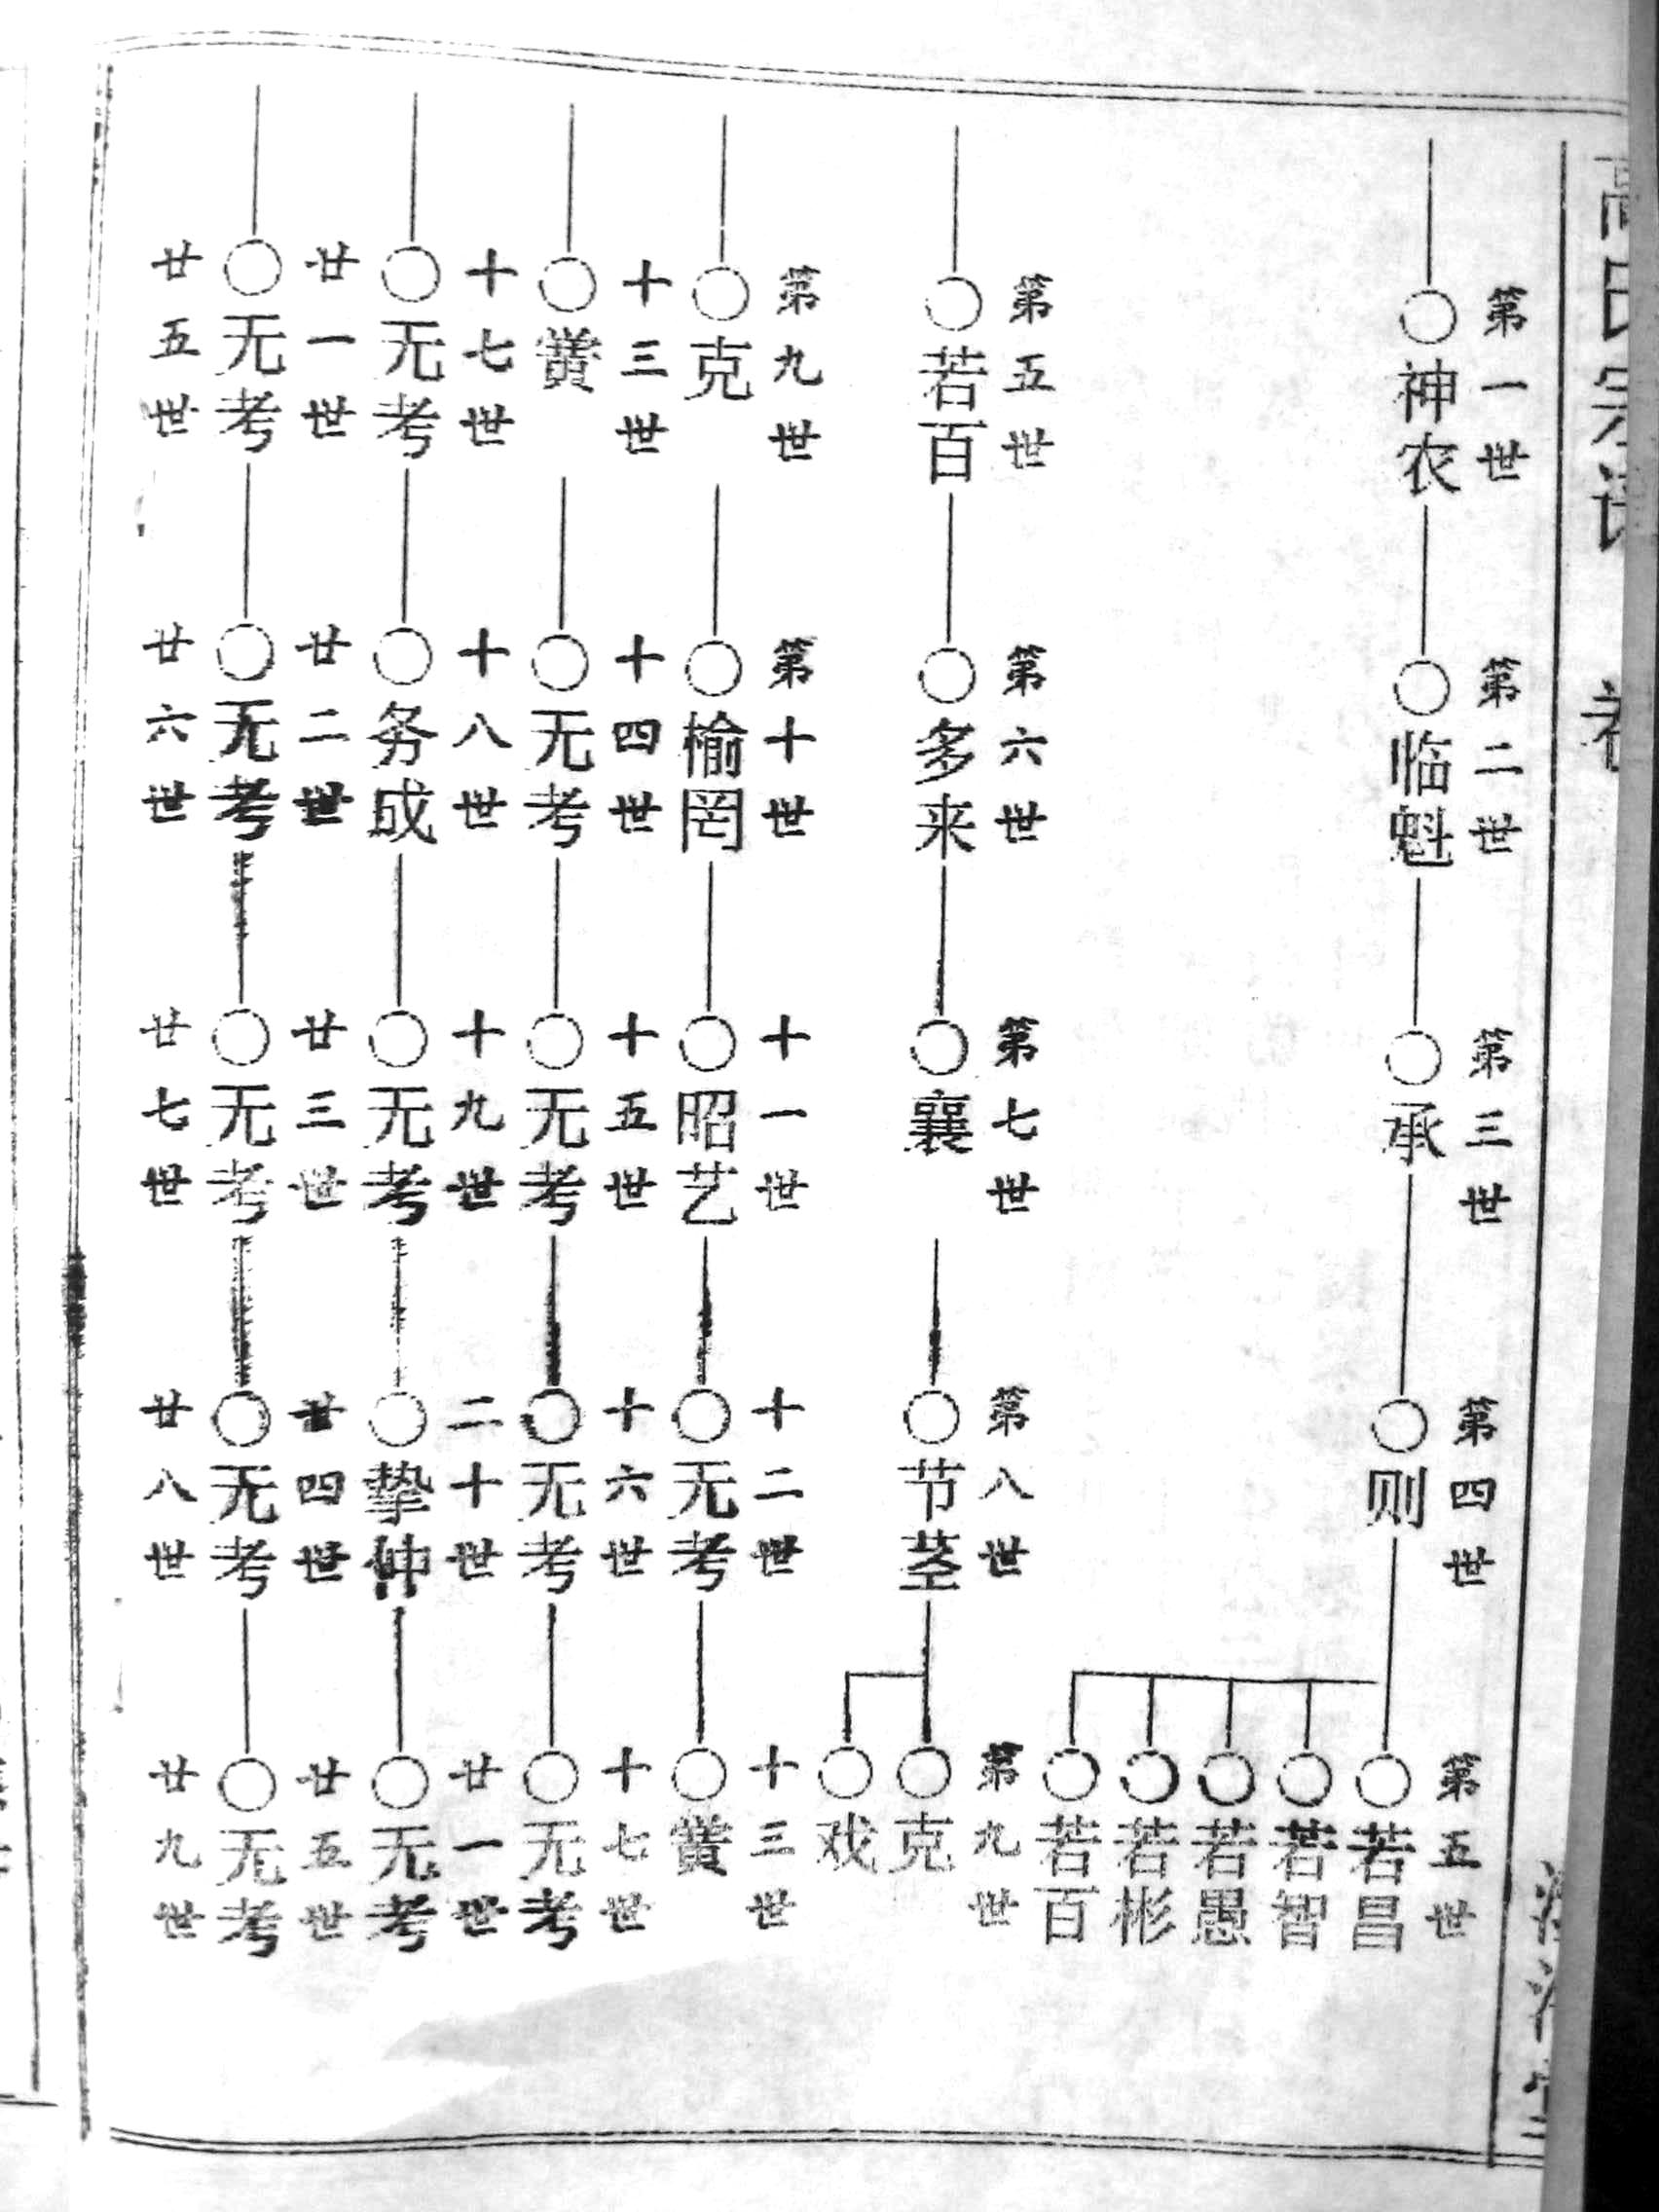 高氏宗谱
第一世
神农
第二世
临魁
第三世
承
第四世
则
第五世
若昌
若智
若愚
若彬
若百
第五世
若百
第六世
多来
第七世
襄
第八世
节茎
第九世
克
戏
第九世
克
第十世
榆罔
十一世
昭艺
十二世
无考
十三世
黉
十三世
黉
十四世
无考
十五世
无考
十六世
无考
十七世
无考
十七世
无考
十八世
务成
十九世
无考
二十世
挚仲
廿一世
无考
廿一世
无考
廿二世
无考
廿三世
无考
廿四世
无考
廿五世
无考
廿五世
廿六世
廿七世
廿八世
廿九世